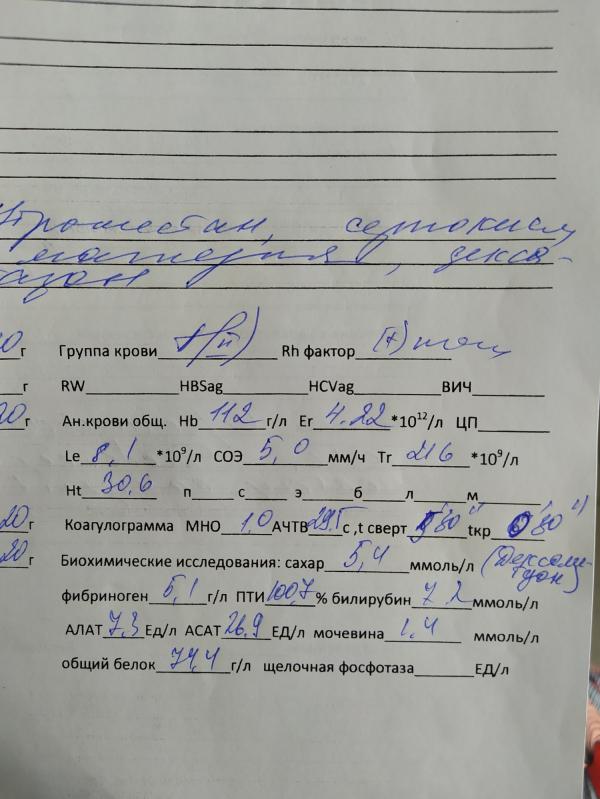 Утрожестан, сернокислая
магнезия, декса-
газон
0г Группа крови A(II) Rh фактор (+)
г RW HBSag HCVag ВИЧ
20г Ан.крови общ. Hb 112 г/л Er 4.22 *10¹²/л ЦП
Le 8,1 *10⁹/л СОЭ 5,0 мм/ч Tr 216 *10⁹/л
Ht 30,6 п с э б л м
20г Коагулограмма МНО 1,0 АЧТВ с ,t сверт tкр
20г Биохимические исследования: сахар 5,4 ммоль/л
фибриноген 5,1 г/л ПТИ 100,7 % билирубин 7 2 ммоль/л
АЛАТ 7,3 Ед/л АСАТ 26.9 ЕД/л мочевина 1.4 ммоль/л
общий белок 74,4 г/л щелочная фосфотаза ЕД/л